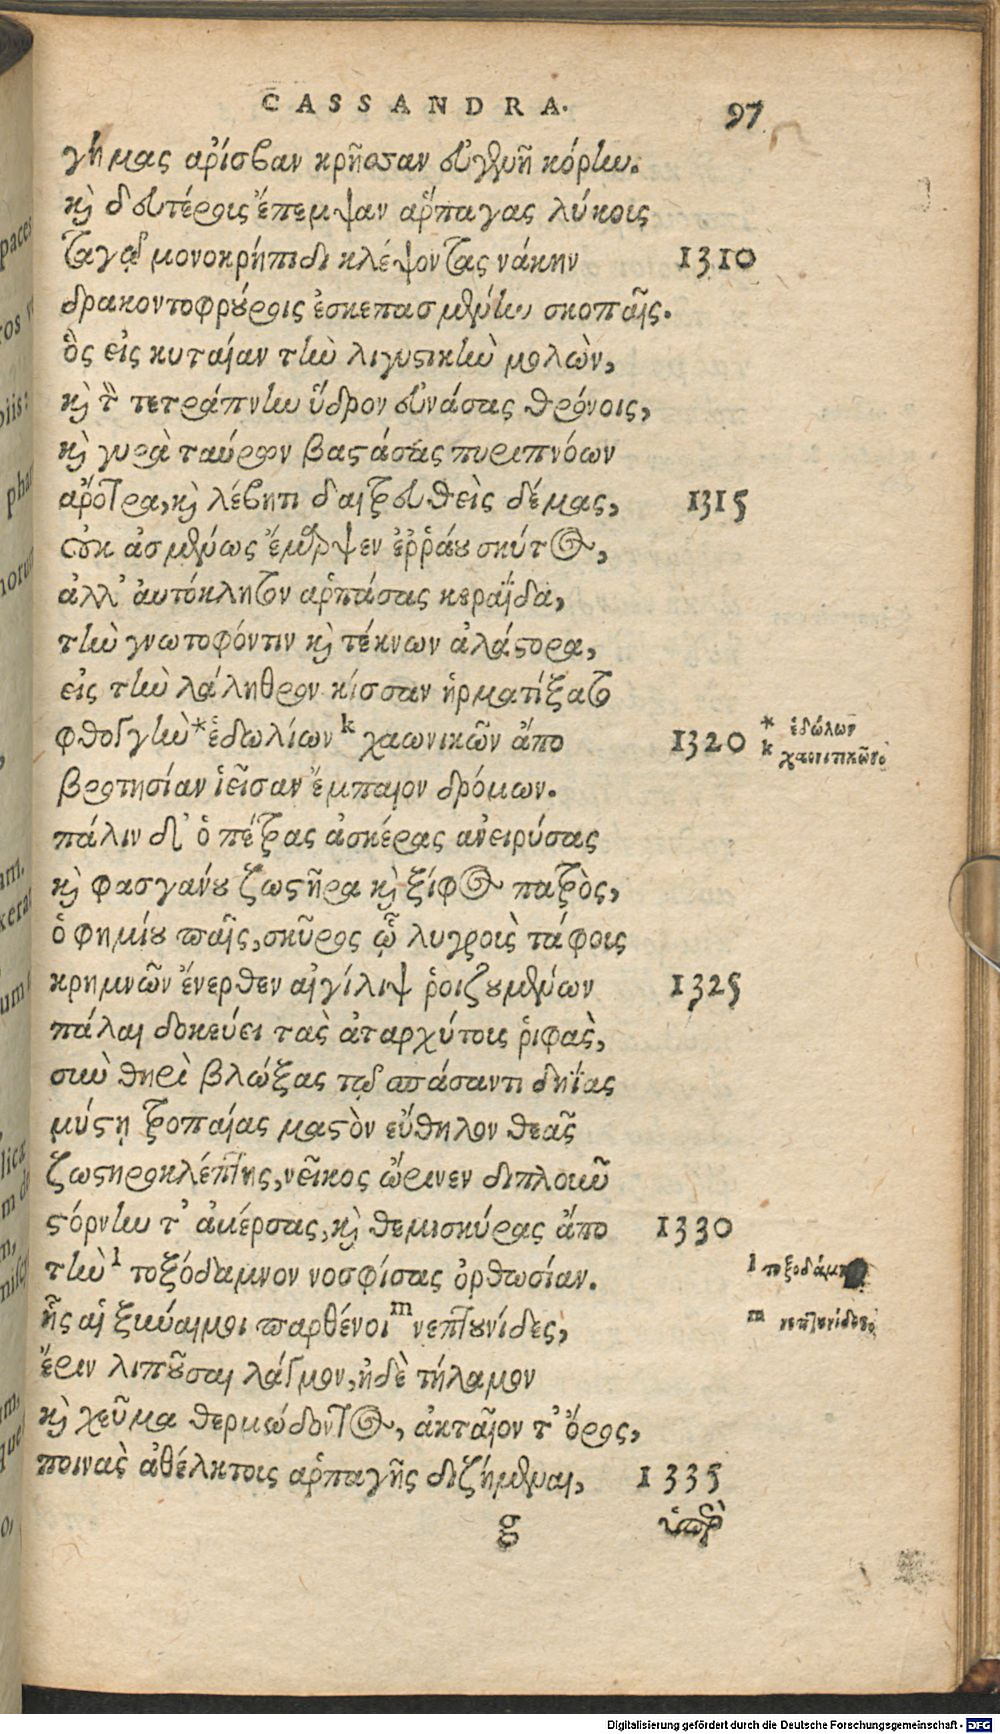 CASSANDRA. 97
γήμας ἀρίσβαν κρῆσσαν εὐγενῆ κόρην.
καὶ δευτέρους ἔπεμψαν ἅρπαγας λύκους
ταγῷ μονοκρήπιδι κλέψοντας νάκην 1310
δρακοντοφρούροις ἐσκεπασμένην σκοπαῖς.
ὃς εἰς κυταίαν τὴν λιγυστικὴν μολὼν,
καὶ τὸν τετράπνην ὕδρον εὐνάσας θρόνοις,
καὶ γυρὰ ταύρων βαστάσας πυριπνόων
ἄροτρα, καὶ λέβητι δαιτρευθεὶς δέμας, 1315
οὐκ ἀσμένως ἔμαρψεν ἐῤῥάου σκύτος,
ἀλλ' αὐτόκλητον ἁρπάσας κεραΐδα,
τὴν γνωτοφόντιν καὶ τέκνων ἀλάστορα,
εἰς τὴν λάληθρον κίσσαν ἡρματίξατο
φθογγὴν * ἑδωλίων k χαωνικῶν ἄπο 1320
* ἑδώλων
k χαονιτικῶν
βροτησίαν ἱεῖσαν ἔμπαιον δρόμων.
πάλιν δ' ὁ πέτρας ἀσκέρας ἀνειρύσας
καὶ φασγάνου ζωστῆρα καὶ ξίφος πατρὸς,
ὁ φημίου παῖς, σκῦρος ᾧ λυγροὺς τάφους
κρημνῶν ἔνερθεν αἰγίλιψ ῥοιζουμένων 1325
πάλαι δοκεύει τὰς ἀταρχύτους ῥιφὰς,
σὺν θηρὶ βλώξας τῷ σπάσαντι δηΐας
μύστῃ τροπαίας μαστὸν εὔθηλον θεᾶς
ζωστηροκλέπτης, νεῖκος ὤρινεν διπλοῦν
στόρνην τ' ἀμέρσας, καὶ θεμισκύρας ἄπο 1330
τὴν l τοξόδαμνον νοσφίσας ὀρθωσίαν.
m νεπτουνίδος
ἧς αἱ ξύναιμοι παρθένοι m νεπτουνίδες,
ἔριν λιποῦσαι λάγμον, ἠδὲ τήλαμον
καὶ χεῦμα θερμώδοντος, ἀκταῖον τ' ὄρος,
ποινὰς ἀθέλκτους ἁρπαγῆς διζήμεναι, 1335
g ὑπὲρ
Digitalisierung gefördert durch die Deutsche Forschungsgemeinschaft - DFG